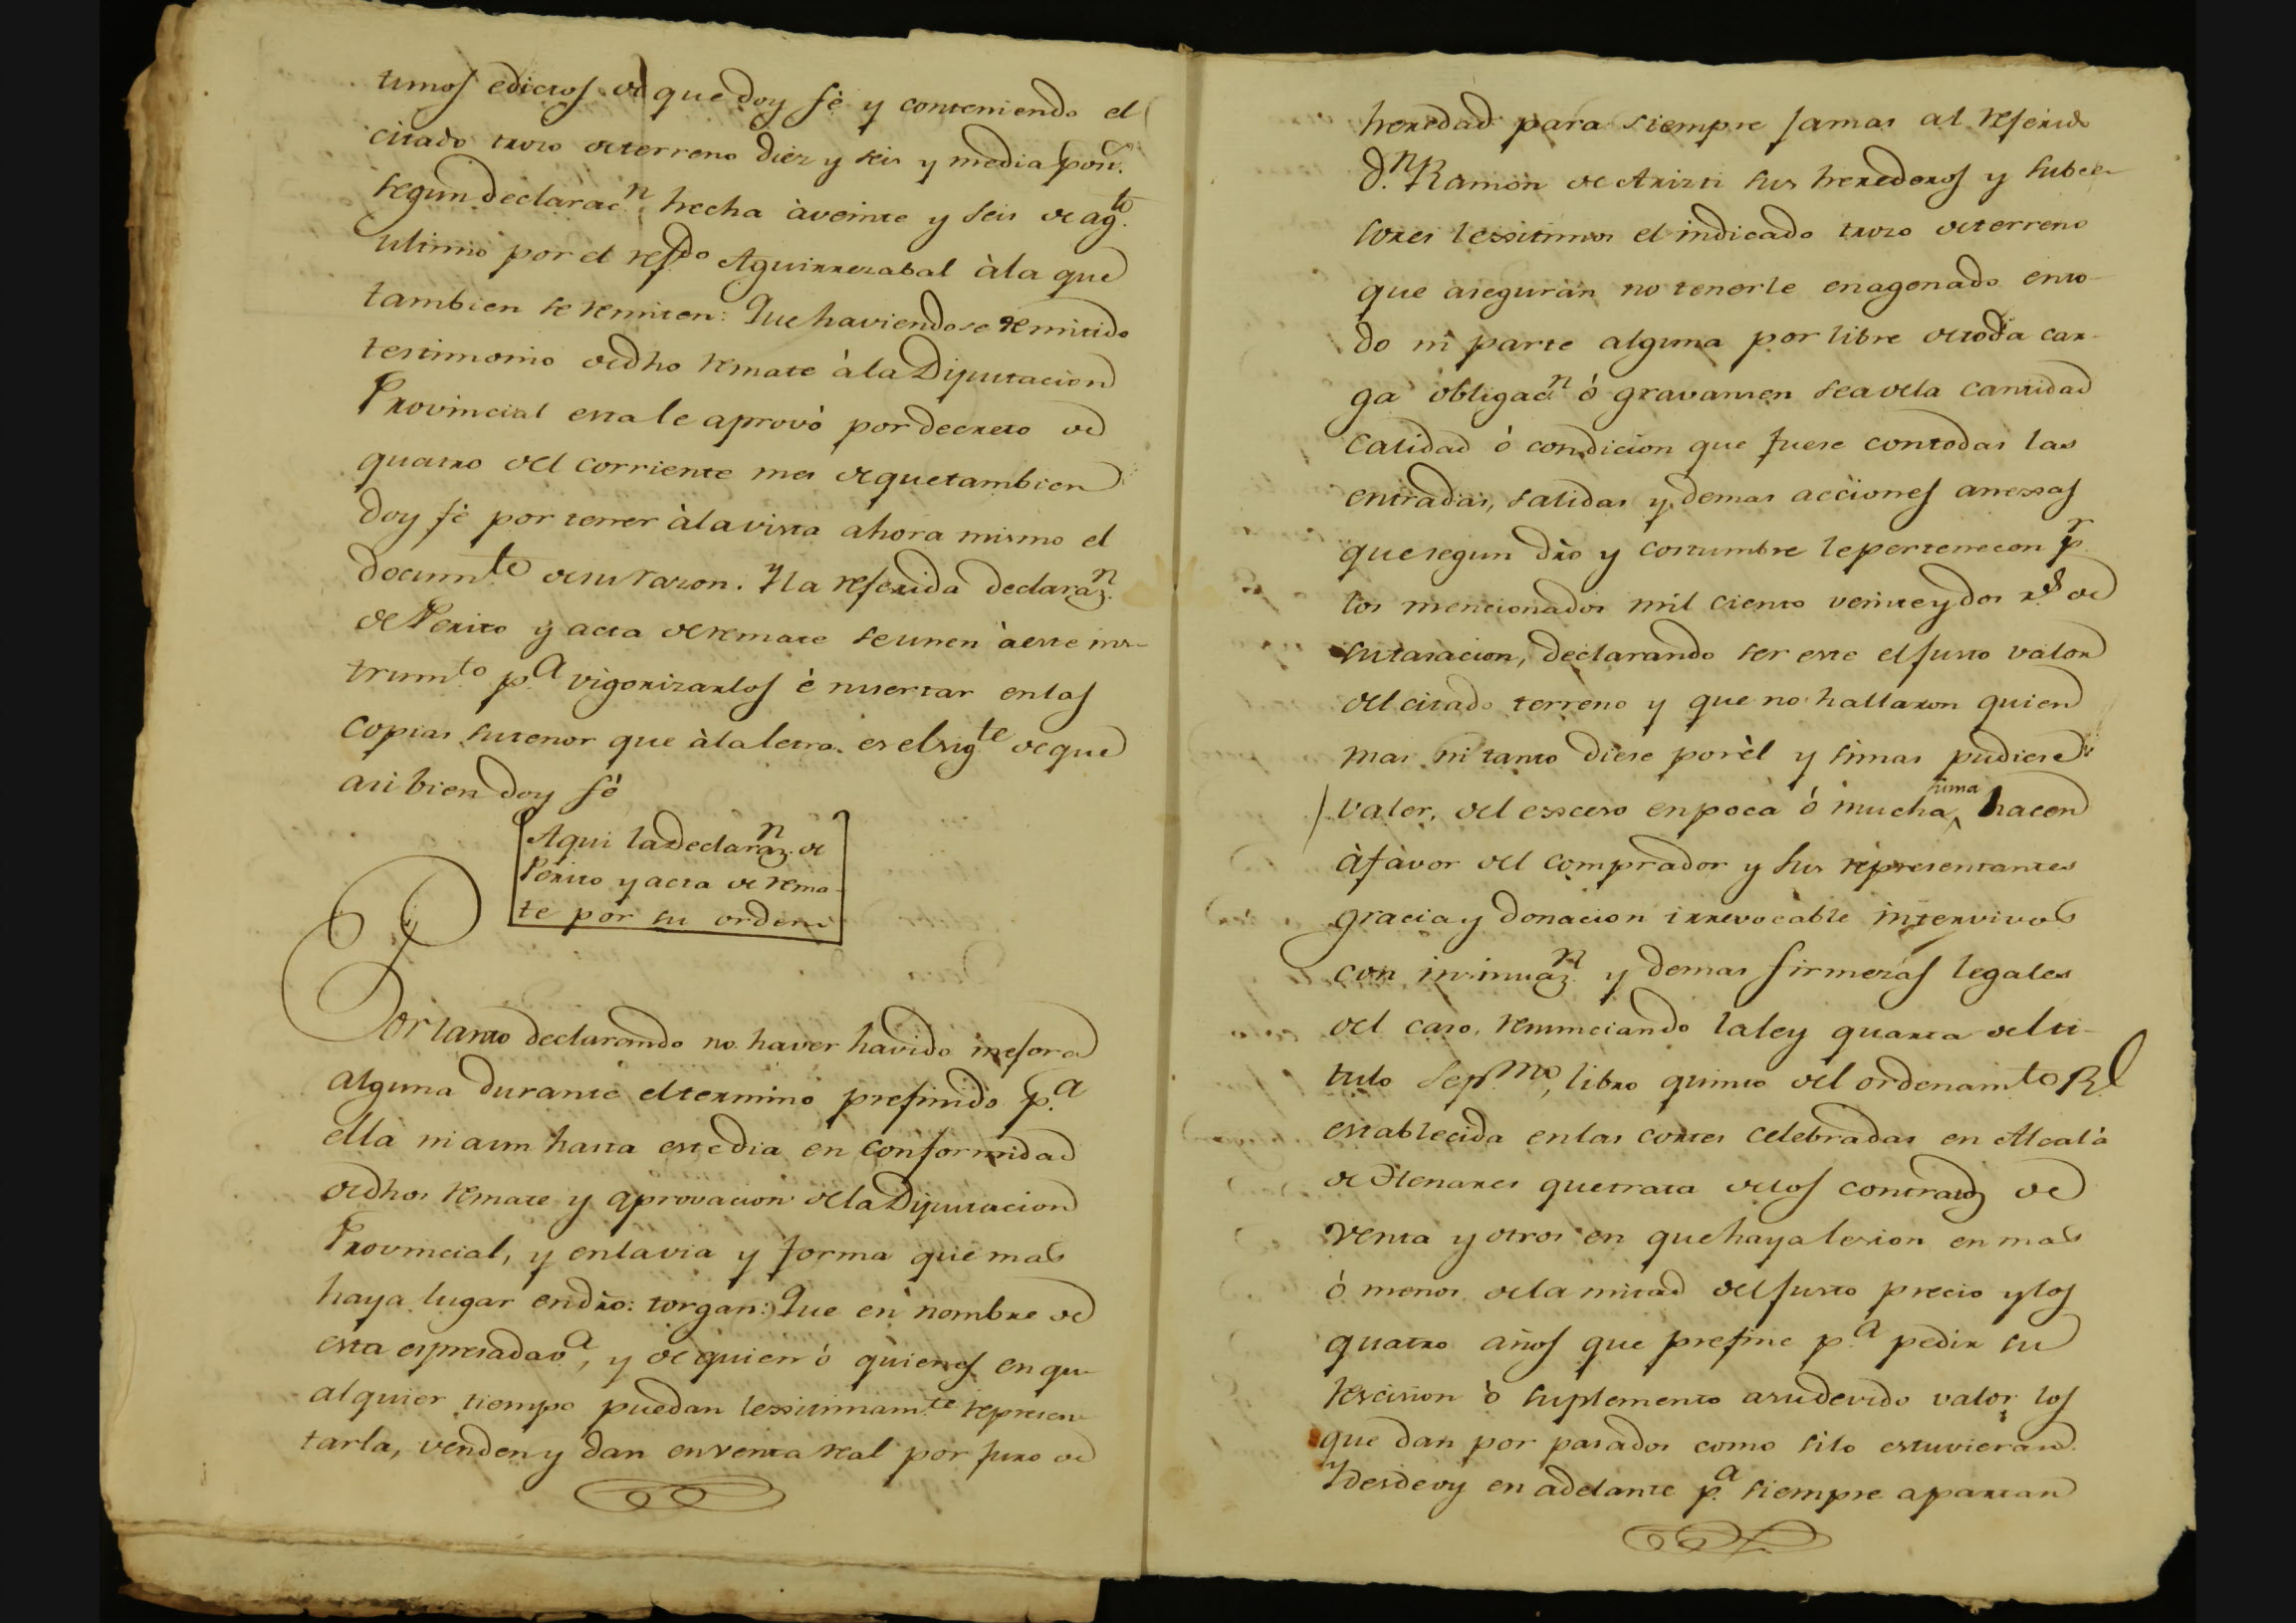 timos edictos de que doy fè y conteniendo el
citado trozo de terreno diez y seis y media pos.
segun declarac.n hecha à veinte y seis de ag.to
ultimo por el refdo Aguirrezabal à la que
tambien se remiten: Que haviendose remitido
testimonio de dho remate à la Diputacion
Provincial esta le aprovò por decreto de
quatro del corriente mes de que tambien
doy fè por tener à la vista ahora mismo el
documto de su razon. Y la referida declaraz.n
de Perito y acta de remate se unen à este ins-
trumto p.a vigorizarlos è insertar en las
copias su tenor que à la letra es el sigte de que
asi bien doy fè
Aqui la declaraz.n de
Perito y acta de rema-
te por su orden
Por tanto declarando no haver havido mejora
alguna durante el termino prefinido p.a
ella ni aun hasta este dia en conformidad
de dhos remate y aprovacion de la Diputacion
Provincial, y en la via y forma que mas
haya lugar en dro: torgan: Que en nombre de
esta espresada v.a, y de quien ò quienes en qu-
alquier tiempo puedan lexitimamte represen-
tarla, venden y dan en venta real por juro de
heredad para siempre jamas al referido
D.n Ramon de Arizti sus herederos y subce-
sores lexitimos el indicado trozo de terreno
que aseguran no tenerle enagenado en to-
do ni parte alguna por libre de toda car-
ga obligac.n ó gravamen sea de la cantidad
calidad ò condicion que fuere con todas las
entradas, salidas y demas acciones anexas
que segun dro y costumbre le pertenecen p.r
los mencionados mil ciento veinte y dos r.s de
su tasacion, declarando ser este el justo valor
del citado terreno y que no hallaron quien
mas ni tanto diese por èl y si mas pudiere
valer, del exceso en poca ó mucha suma hacen
à favor del comprador y sus representantes
gracia y donacion irrevocable intervivos
con insinuaz.n y demas firmezas legales
del caso, renunciando la ley quarta del ti-
tulo sepmo, libro quinto del ordenamto Rl
establecida en las cortes celebradas en Alcalà
de Henares que trata de los contratos de
venta y otros en que haya lesion en mas
ò menos de la mitad del justo precio y los
quatro años que prefine p.a pedir su
rescision ò suplemento a su devido valor los
que dan por pasados como si lo estuvieran.
Y desde oy en adelante p.a siempre apartan